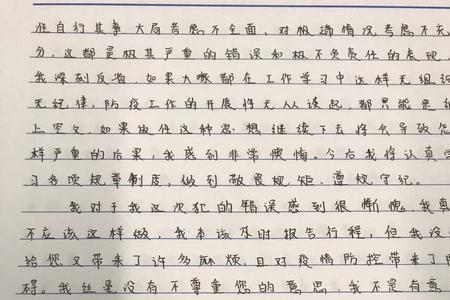 准自行其事,大局考虑不全面,对极端情况考虑不充
分,这都是极其严重的错误和极不负责任的表现
我深刻反省,如果大家都在工作学习中这样无组织
无纪律,防疫工作的开展将无从谈起,都只能是纸
上空文,如果放任这种思想继续下去将会导致怎
样严重的后果,我感到非常懊悔。今后我将认真学
习各项规章制度,做到敬畏规矩、遵规守纪。
我对于我这次犯的错误感到很惭愧,我真
不应该这样做,我本该及时报告行程,但我没
给您又带来了许多麻烦,且对疫情防控带来了
碍。我丝毫没有不尊重您的意思,我不是有意